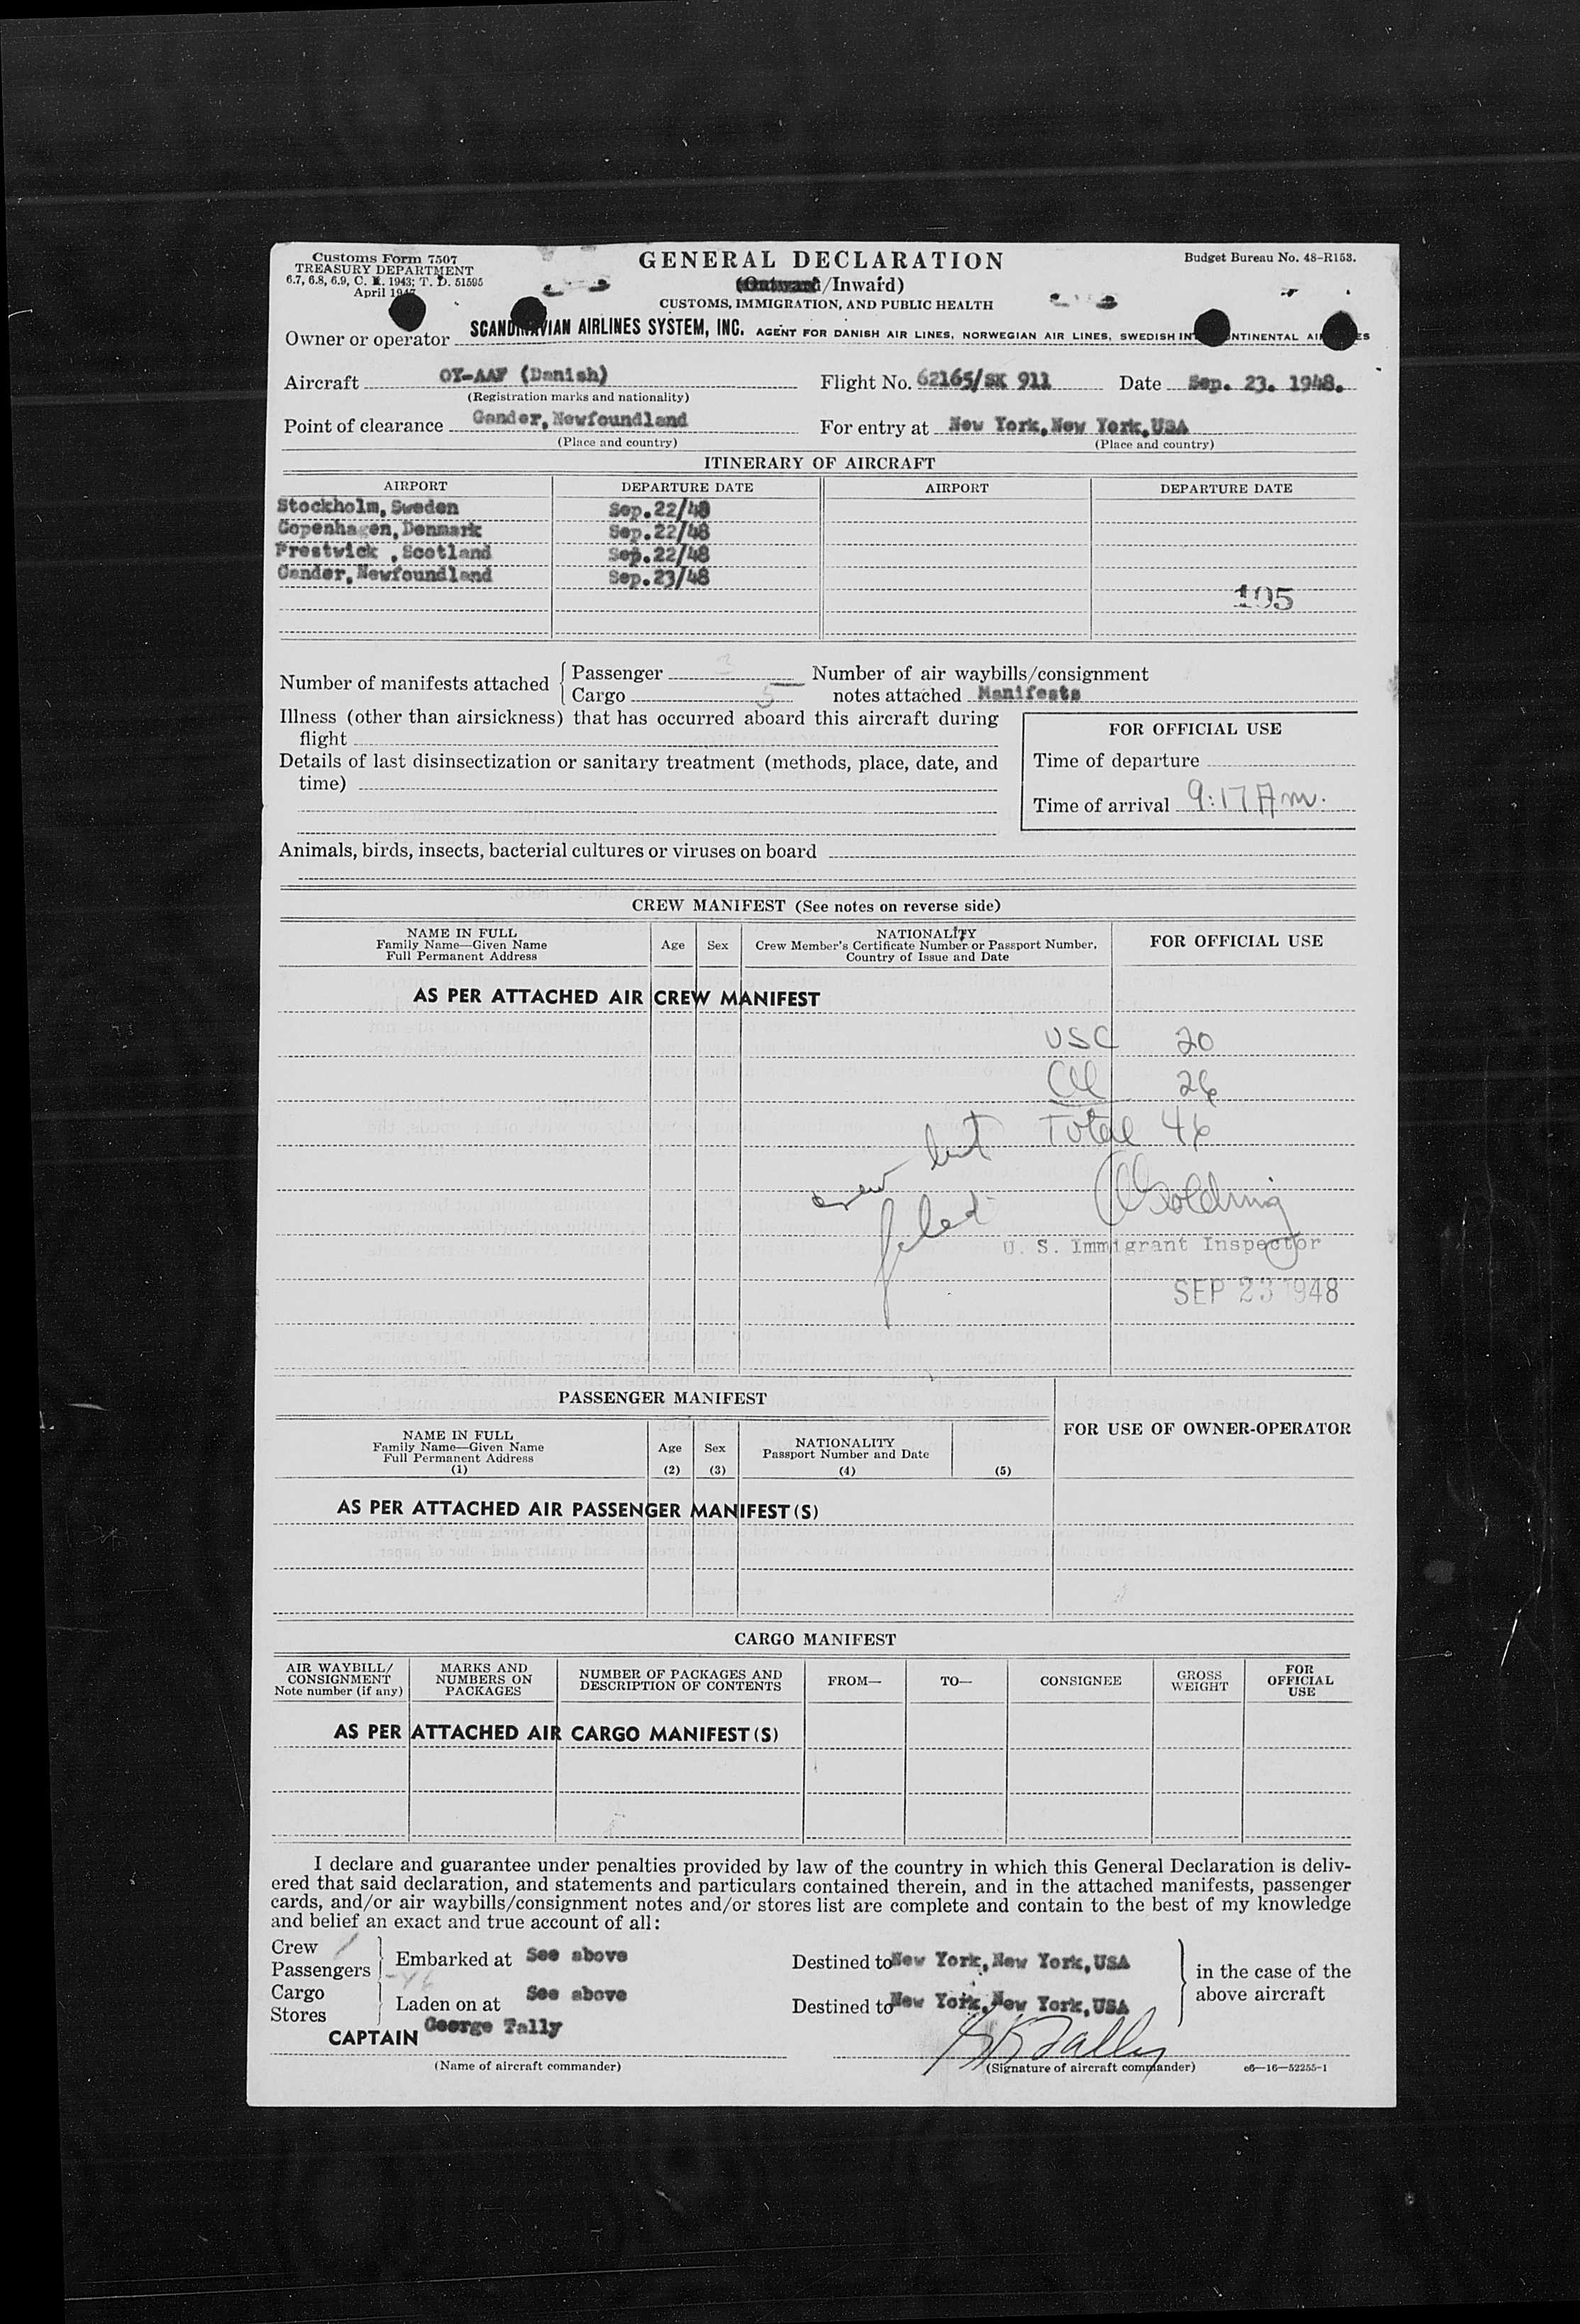 Customs Form 7507
TREASURY DEPARTMENT
6.7, 6.8, 6.9, C. R. 1943; T. D. 51595
April 1947
GENERAL DECLARATION
(Outward/Inward)
CUSTOMS, IMMIGRATION, AND PUBLIC HEALTH
Budget Bureau No. 48-R153.
Owner or operator SCANDINAVIAN AIRLINES SYSTEM, INC. AGENT FOR DANISH AIR LINES, NORWEGIAN AIR LINES, SWEDISH INTERCONTINENTAL AIRLINES
Aircraft OY-AAF (Danish) Flight No. 62165/SK 911 Date Sep. 23. 1948.
(Registration marks and nationality)
Point of clearance Gander, Newfoundland For entry at New York, New York, USA
(Place and country) (Place and country)
ITINERARY OF AIRCRAFT
AIRPORT DEPARTURE DATE AIRPORT DEPARTURE DATE
Stockholm, Sweden Sep. 22/48
Copenhagen, Denmark Sep. 22/48
Prestwick , Scotland Sep. 22/48
Gander, Newfoundland Sep. 23/48
195
Number of manifests attached
Passenger 3
Cargo 5
Number of air waybills/consignment
notes attached Manifests
Illness (other than airsickness) that has occurred aboard this aircraft during
flight
Details of last disinsectization or sanitary treatment (methods, place, date, and
time)
FOR OFFICIAL USE
Time of departure
Time of arrival 9:17 Am.
Animals, birds, insects, bacterial cultures or viruses on board
CREW MANIFEST (See notes on reverse side)
NAME IN FULL
Family Name—Given Name
Full Permanent Address
Age
Sex
NATIONALITY
Crew Member's Certificate Number or Passport Number,
Country of Issue and Date
FOR OFFICIAL USE
AS PER ATTACHED AIR CREW MANIFEST
USC 20
26
Total 46
crew list
filed
Golding
U. S. Immigrant Inspector
SEP 23 1948
PASSENGER MANIFEST
NAME IN FULL
Family Name—Given Name
Full Permanent Address
(1)
Age
(2)
Sex
(3)
NATIONALITY
Passport Number and Date
(4)
(5)
FOR USE OF OWNER-OPERATOR
AS PER ATTACHED AIR PASSENGER MANIFEST(S)
CARGO MANIFEST
AIR WAYBILL/
CONSIGNMENT
Note number (if any)
MARKS AND
NUMBERS ON
PACKAGES
NUMBER OF PACKAGES AND
DESCRIPTION OF CONTENTS
FROM—
TO—
CONSIGNEE
GROSS
WEIGHT
FOR
OFFICIAL
USE
AS PER ATTACHED AIR CARGO MANIFEST(S)
I declare and guarantee under penalties provided by law of the country in which this General Declaration is deliv-
ered that said declaration, and statements and particulars contained therein, and in the attached manifests, passenger
cards, and/or air waybills/consignment notes and/or stores list are complete and contain to the best of my knowledge
and belief an exact and true account of all:
Crew
Passengers
Embarked at See above Destined to New York, New York, USA
Cargo
Stores
Laden on at See above Destined to New York, New York, USA
in the case of the
above aircraft
CAPTAIN George Tally
(Name of aircraft commander)
(Signature of aircraft commander)
c6—16—52255-1